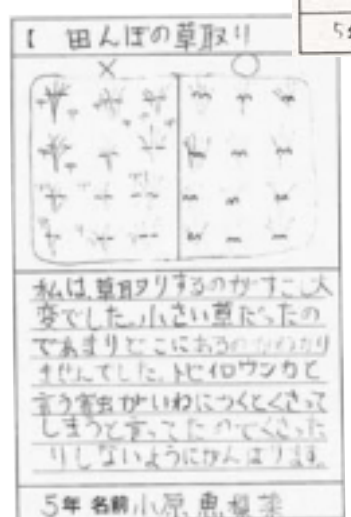 【 田んぼの草取り
× ○
私は、草取りするのがすこし大
変でした。小さい草だったの
であまりどこにあるのかわかり
ませんでした。トビイロウンカと
言う害虫がいねにつくとくさって
しまうと言ってたのでくさった
りしないようにがんばります。
5年 名前 小原 恵